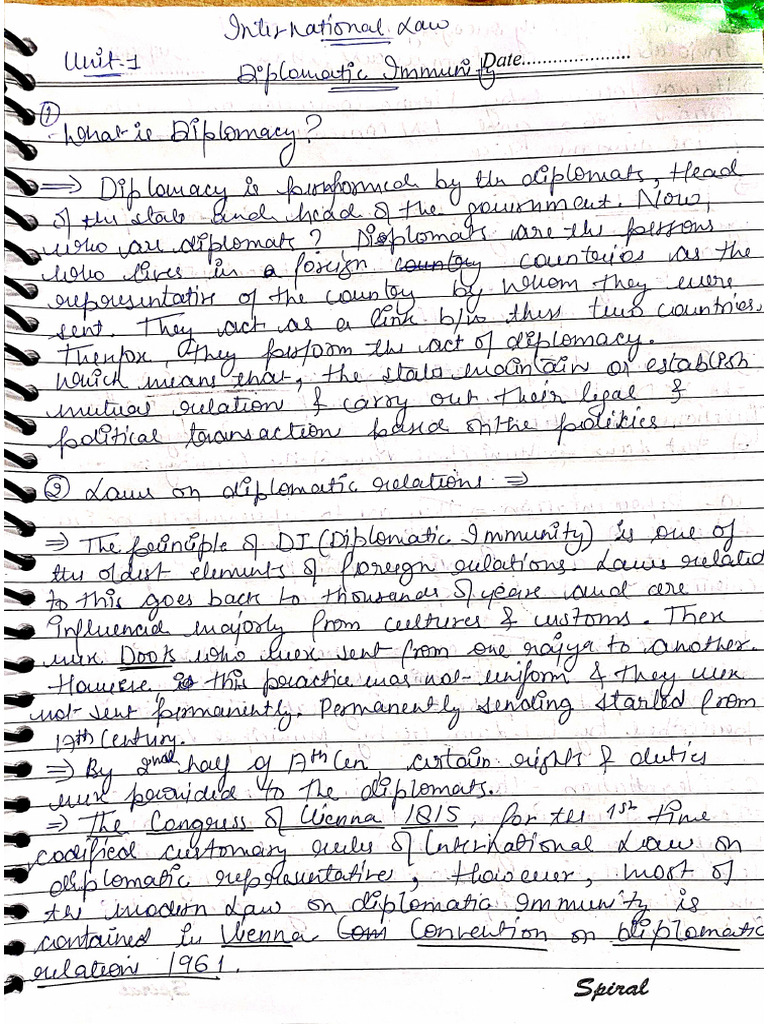 International Law
Unit-1
Diplomatic Immunity Date....................
①
What is Diplomacy?
⇒ Diplomacy is performed by the diplomats, Head
of the state and head of the government. Now,
who are diplomats? Diplomats are the persons
who lives in a foreign country countries as the
representative of the country by whom they were
sent. They act as a link b/w these two countries.
Therefore, they perform the act of diplomacy.
Which means that, the state maintain or establish
mutual relation & carry out their legal &
political transaction based on the politics
② Laws on diplomatic relations ⇒
⇒ The principle of DI (Diplomatic Immunity) is one of
the oldest elements of foreign relations. Laws related
to this goes back to thousands of years and are
influenced majorly from cultures & customs. There
were Doots who were sent from one rajya to another.
However, is this practice was not uniform & they were
not sent permanently. Permanently sending started from
17th Century.
⇒ By 2nd half of 17th Cen certain rights & duties
were provided to the diplomats.
⇒ The Congress of Vienna 1815, for the 1st time
codified customary rules of International Law on
diplomatic representatives, However, most of
the modern Law on diplomatic Immunity is
contained in Vienna Com Convention on Diplomatic
relation 1961.
Spiral